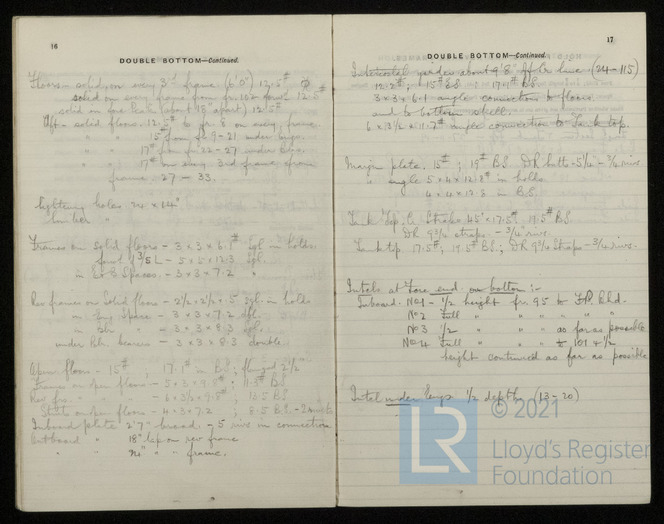 16
DOUBLE BOTTOM—Continued.
Floors - solid on every 3rd frame (6'0") 12.5#
solid on every frame from fr. 102 forwd 12.5#
solid in fore Peak (about 18" apart) 12.5#
Aft - solid floors. 12.5# to fr 8 on every frame.
" " 15# from fr 9-21 under engs.
" " 17# from fr 22-27 under blrs.
" " 17# on every 3rd frame from
frame 27 - 33.
lightening holes. 24 x 14"
limber "
Frames on solid floors - 3 x 3 x 6.1# sgl - holds.
forwd 1/5 L - 5 x 5 x 12.3 sgl.
in E & B Spaces. - 3 x 3 x 7.2 "
Rev frames on Solid floors - 2½ x 2½ x 5# sgl. in holds
in Eng Space - 3 x 3 x 7.2 dbl.
in Blr " - 3 x 3 x 8.3 sgl.
under Blr. bearers - 3 x 3 x 8.3 double
Open floors - 15# ; 17.1# in BS ; flanged 2½"
Frames on open floors - ; B.S
Rev frs. " " - 6 x 3½ x 9.5# ; 13.5 BS
Struts on open floors - 4 x 3 x 7.2 ; 8.5 B.S.
Inboard plate 2'7" broad. - 5 rivs in connection
Outboard " 18" lap on rev frame
" " " " frame.
17
DOUBLE BOTTOM—Continued.
Intercostal girders about 9'8" off Cr line (24-115)
12.2# ; 15# ES 17.1# BS
3 x 3 x 6.1 angle connection to floors
and to bottom shell.
6 x 3½ x 11.7# angle connection to Tank top.
Margin plate. 15# ; 19# B.S. DR butts - 5¼ - ¾ rivs.
" angle 5 x 4 x 12.8# in holds
4 x 4 x 12.8 in B.S.
Tank Top Cr Strake 45" x 17.5# ; 19.5# BS
DR 9¾ straps. - ¾ rivs.
Tank top 17.5# ; 19.5# B.S ; DR 9¾ Straps - ¾ rivs.
Intcls at Fore end on bottom :-
Inboard. No 1 - ½ height fr. 95 to F.P. Bhd.
No 2 Full " " " " "
No 3 ½ " " " as far as possible
No 4 Full " " " to 101 & ½
height continued as far as possible
Intcl under Engs ½ depth (13-20)
LR
© 2021
Lloyd's Register
Foundation